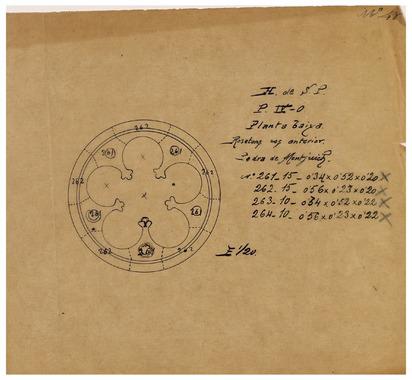 Nº 18
H. de S. P.
P IV-O
Planta Baixa.
Rosetons
anterior.
Pedra de Montjuich.
Nº 261_15_0'34x0'52x0'20 X
262_15_0'56x0'23x0'20 X
263_10_0'84x0'52x0'22 X
264_10_0'56x0'23x0'22 X
E 1/20.
262
261
261
262
262
261
261
261
262
262